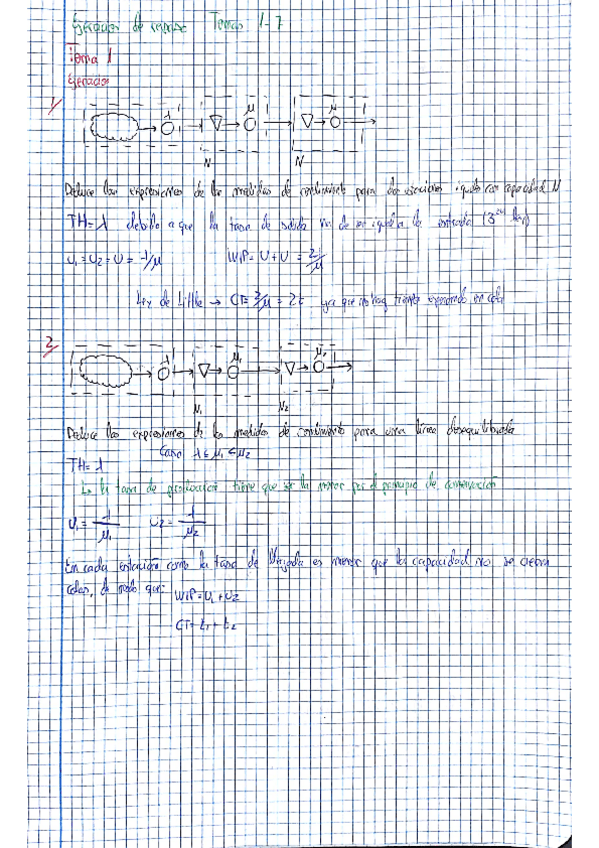 Ejercicios de repaso Temas 1-7
Tema 1
Ejercicios
1/
λ μ μ
N N
Deduce las expresiones de las medidas de rendimiento para dos estaciones iguales con capacidad N
TH = λ debido a que la tasa de salida ha de ser igual a la entrada (3ª ley)
U₁ = U₂ = U = λ/μ WIP = U + U = 2λ/μ
Ley de Little → CT = 2/μ = 2t ya que no hay tiempo esperado en cola
2/
λ μ₁ μ₂
N₁ N₂
Deduce las expresiones de las medidas de rendimiento para una línea desequilibrada
Caso λ ≤ μ₁ ≤ μ₂
TH = λ
La tasa de producción tiene que ser la menor por el principio de conservación
U₁ = λ/μ₁ U₂ = λ/μ₂
En cada estación como la tasa de llegada es menor que la capacidad no se crean
colas, de modo que: WIP = U₁ + U₂
CT = t₁ + t₂